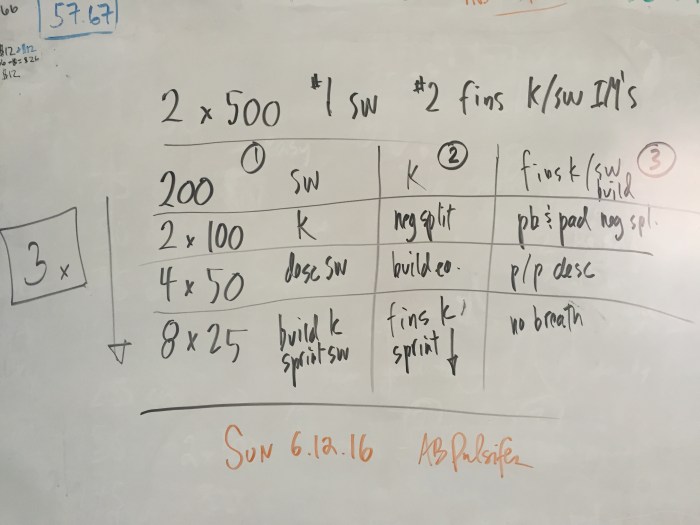 57.67
2 x 500 #1 sw #2 fins k/sw IM's
① ② ③
200 sw K fins k/sw build
2 x 100 K neg split pb & pad neg spl.
3x
4 x 50 desc sw build ea. p/p desc
8 x 25 build k fins k no breath
sprint sw sprint ↓
Sun 6.12.16 AB Pulsifer